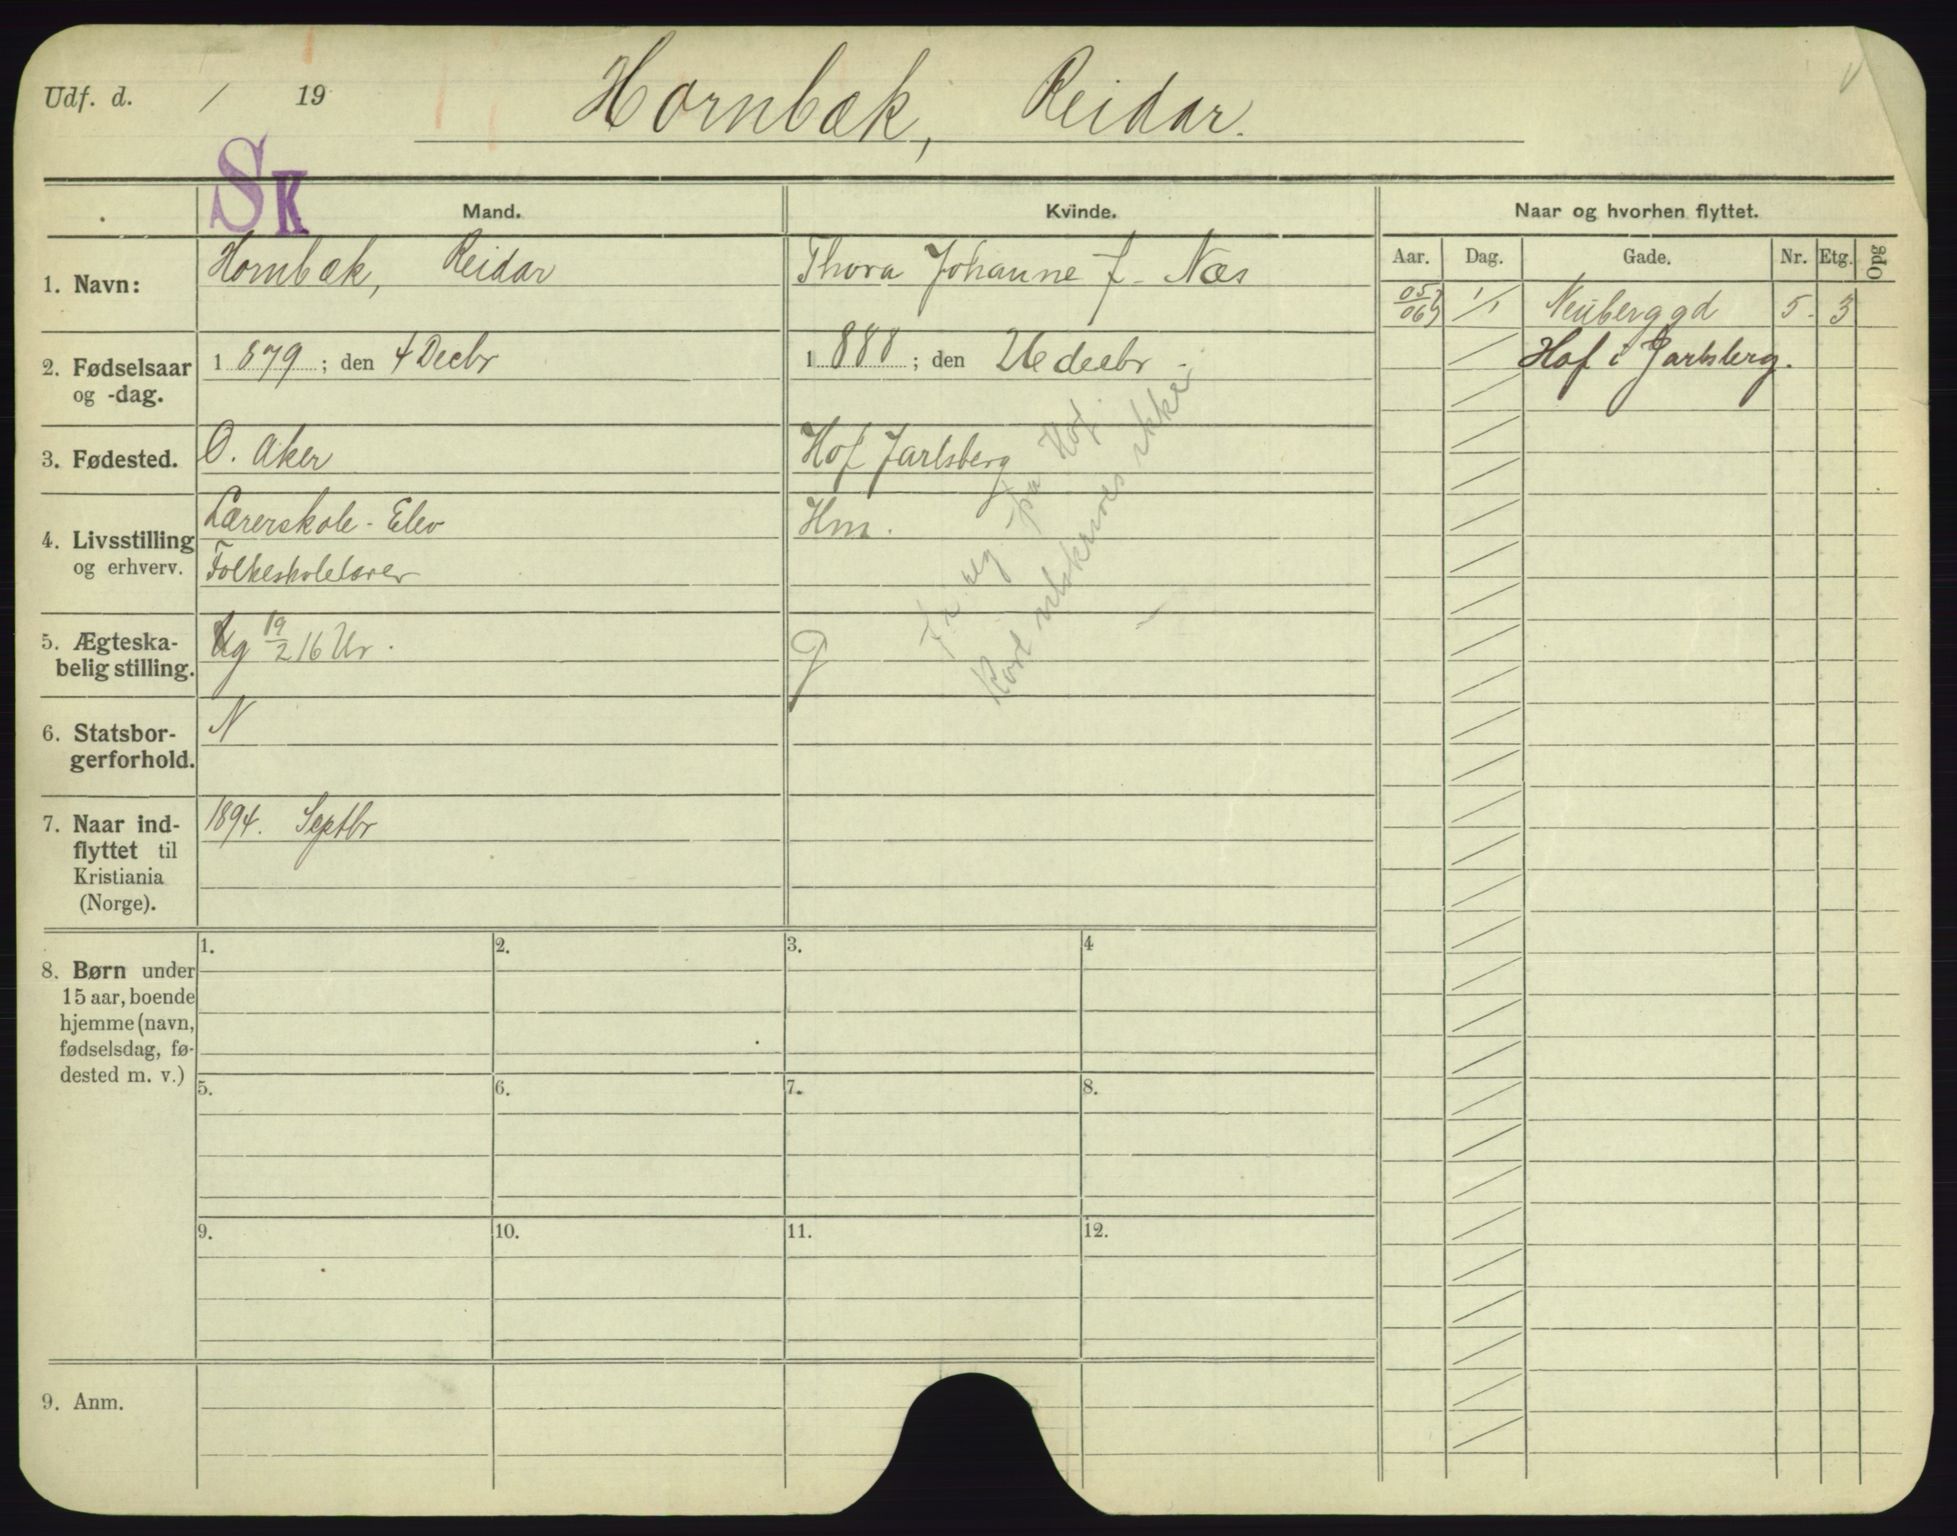 Udf. d. / 19
Hornbæk, Reidar.
SK
Mand.
Kvinde.
Naar og hvorhen flyttet.
Aar. Dag. Gade. Nr. Etg. Opg
1. Navn:
Hornbæk, Reidar
Thora Johanne f. Næs
05 1/1 Neuberggd 5. 3
06
Hof i Jarlsberg.
2. Fødselsaar
og -dag.
1879; den 4 Decbr
1888; den 26 decbr.
3. Fødested.
Ø. Aker
Hof Jarlsberg
4. Livsstilling
og erhverv.
Lærerskole-Elev
Folkeskolelærer
Hm.
på Hof.
Kort utskrives ikke
5. Ægteska-
belig stilling.
Ug 19/2 16 Ur.
g
6. Statsbor-
gerforhold.
N
7. Naar ind-
flyttet til
Kristiania
(Norge).
1894. Septbr
8. Børn under
15 aar, boende
hjemme (navn,
fødselsdag, fø-
dested m. v.)
1. 2. 3. 4
5. 6. 7. 8.
9. 10. 11. 12.
9. Anm.